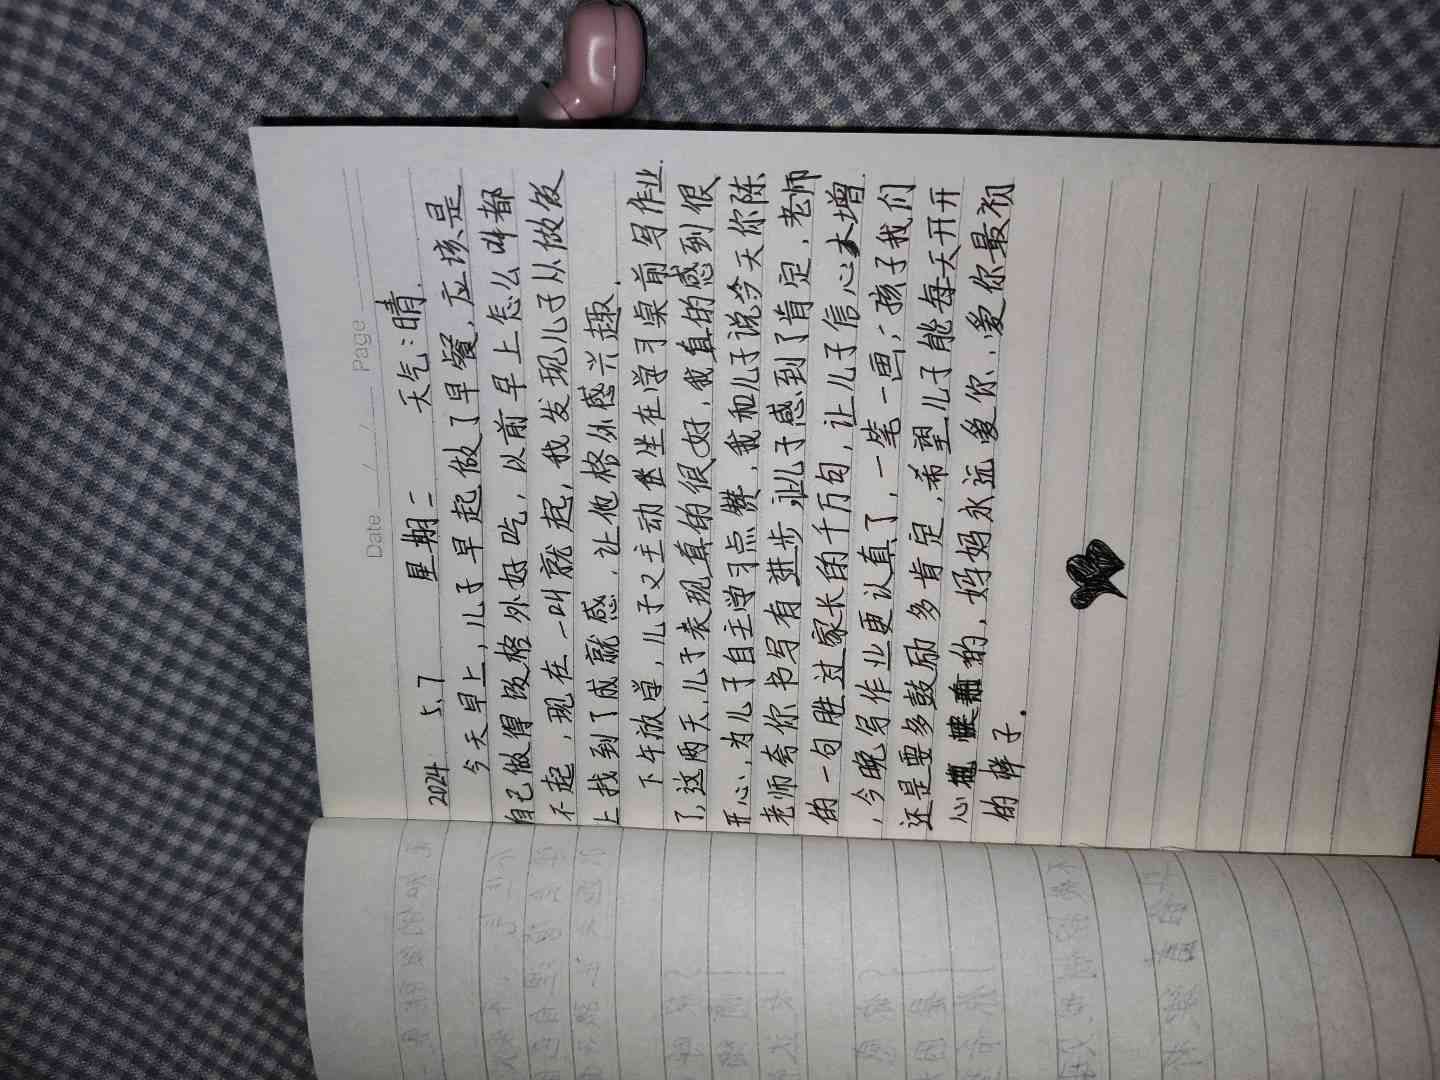 Date / / Page
2024 5.7 星期二 天气:晴.
今天早上,儿子早起做了早餐,应该是
自己做得饭格外好吃,以前早上怎么叫都
不起,现在一叫就起,我发现儿子从做饭
上找到了成就感,让他格外感兴趣.
下午放学,儿子又主动坐在学习桌前写作业.
了,这两天,儿子表现真的很好,我真的感到很
开心,为儿子自主学习点赞,我和儿子说今天你陈
老师夸你书写有进步,让儿子感到了肯定,老师
的一句胜过家长的千万句,让儿子信心大增.
,今晚写作业更认真了,一笔一画,孩子我们
还是要多鼓励多肯定,希望儿子能每天开开
心 的,妈妈永远爱你,爱你最初
的样子.